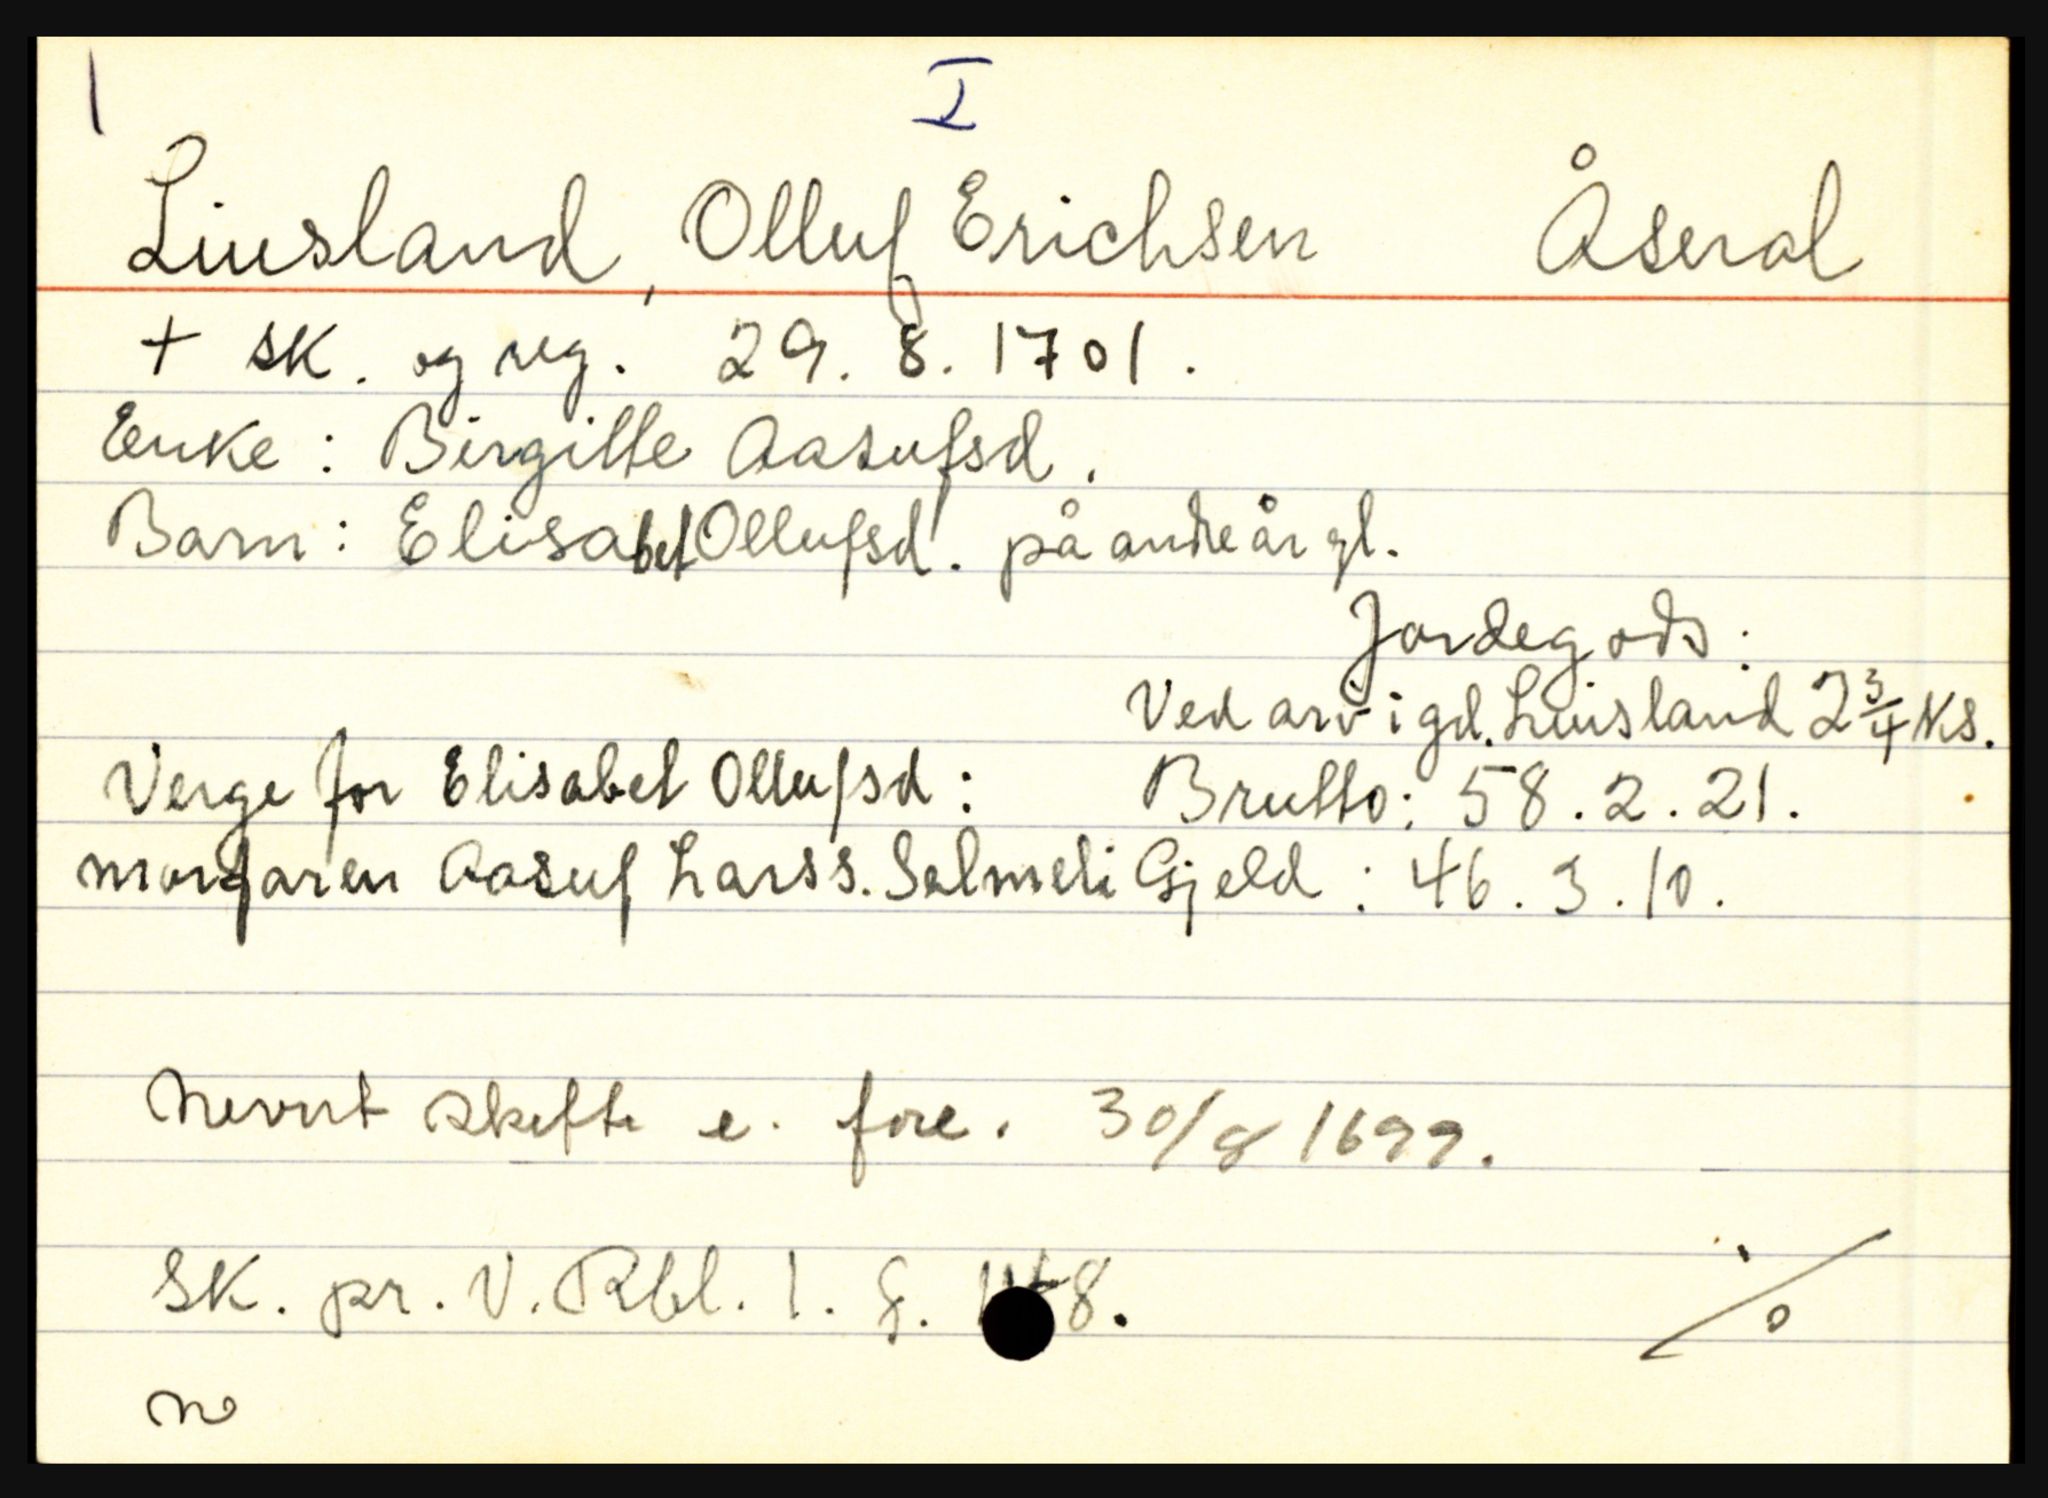 1
I
Liusland, Olluf Erichsen Åseral
+ sk. og reg. 29. 8. 1701.
Enke: Birgitte Aasufsd.
Barn: Elisabet Ollufsd. på andre år gl.
Jordegods:
Ved arv i gd. Liusland 2 3/4 ks.
Verge for Elisabet Ollufsd: Brutto: 58. 2. 21.
morfaren Aasuf Larss. Selmeli Gjeld: 46. 3. 10.
Nevnt skifte e. fore. 30/8 1699.
Sk. pr. V. Rbl. 1. 8.